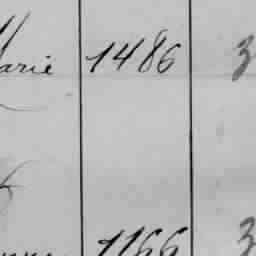 Marie 1486 3
1166 3